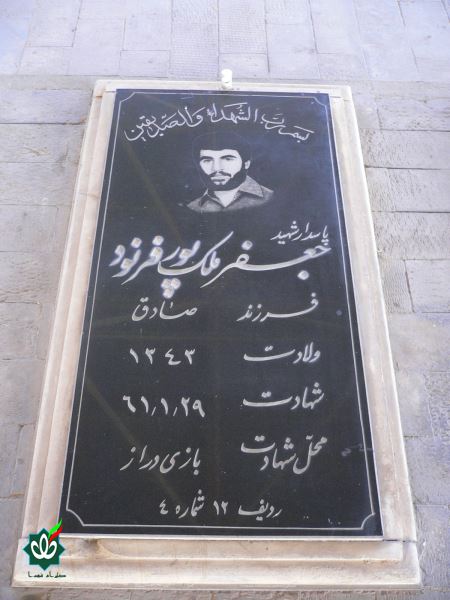 بسم رب الشهداء والصدیقین
پاسدار شهید
جعفر ملک پور فرنود
فرزند صادق
ولادت ۱۳۴۳
شهادت ۶۱/۱/۲۹
محل شهادت بازی دراز
ردیف ۱۲ شماره ۴